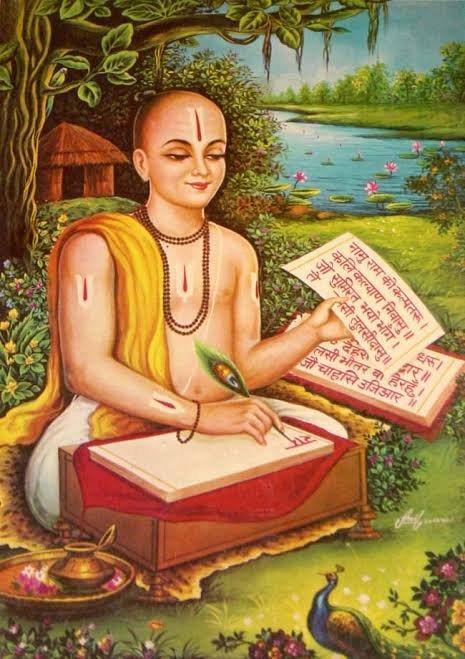 नाम राम को कल्पतरु।
कलि कल्याण निवासु॥
जो सुमिरत भयो भंग।
सी तुलसीदासु॥
देहर
लसी भीतर ब हेरहुँ॥
जौं चाहसि उजिआर॥
राम